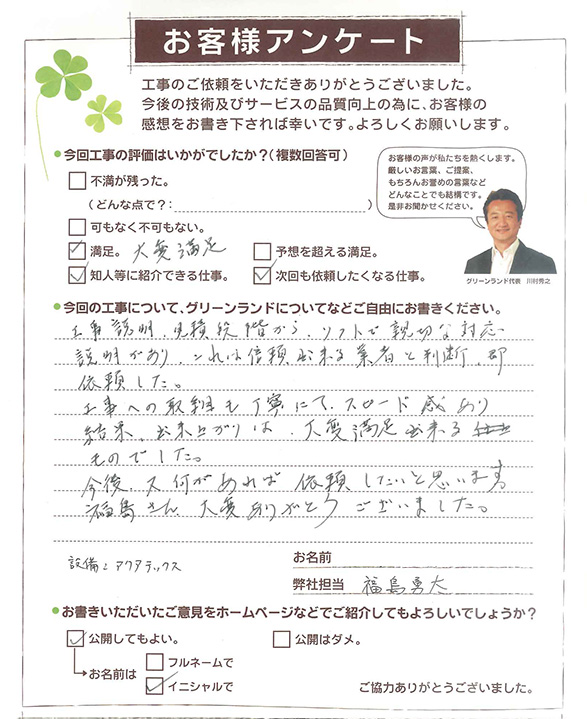 お客様アンケート
工事のご依頼をいただきありがとうございました。
今後の技術及びサービスの品質向上の為に、お客様の
感想をお書き下されば幸いです。よろしくお願いします。
●今回工事の評価はいかがでしたか？(複数回答可)
不満が残った。
（どんな点で？：　　　）
可もなく不可もない。
満足。 大変満足
予想を超える満足。
知人等に紹介できる仕事。
次回も依頼したくなる仕事。
お客様の声が私たちを熱くします。
厳しいお言葉、ご提案、
もちろんお誉めの言葉など
どんなことでも結構です。
是非お聞かせください。
グリーンランド代表　川村芳之
●今回の工事について、グリーンランドについてなどご自由にお書きください。
工事説明、見積段階から、ソフトで親切な対応
説明があり、これは信頼出来る業者と判断、即
依頼した。
工事への取組も丁寧にて、スピード感あり
結果、出来上がりは、大変満足出来る
ものでした。
今後、又何があれば依頼したいと思います。
福島さん、大変ありがとうございました。
設備：アクアテックス
お名前
弊社担当　福島勇太
●お書きいただいたご意見をホームページなどでご紹介してもよろしいでしょうか？
公開してもよい。
公開はダメ。
お名前は
フルネームで
イニシャルで
ご協力ありがとうございました。